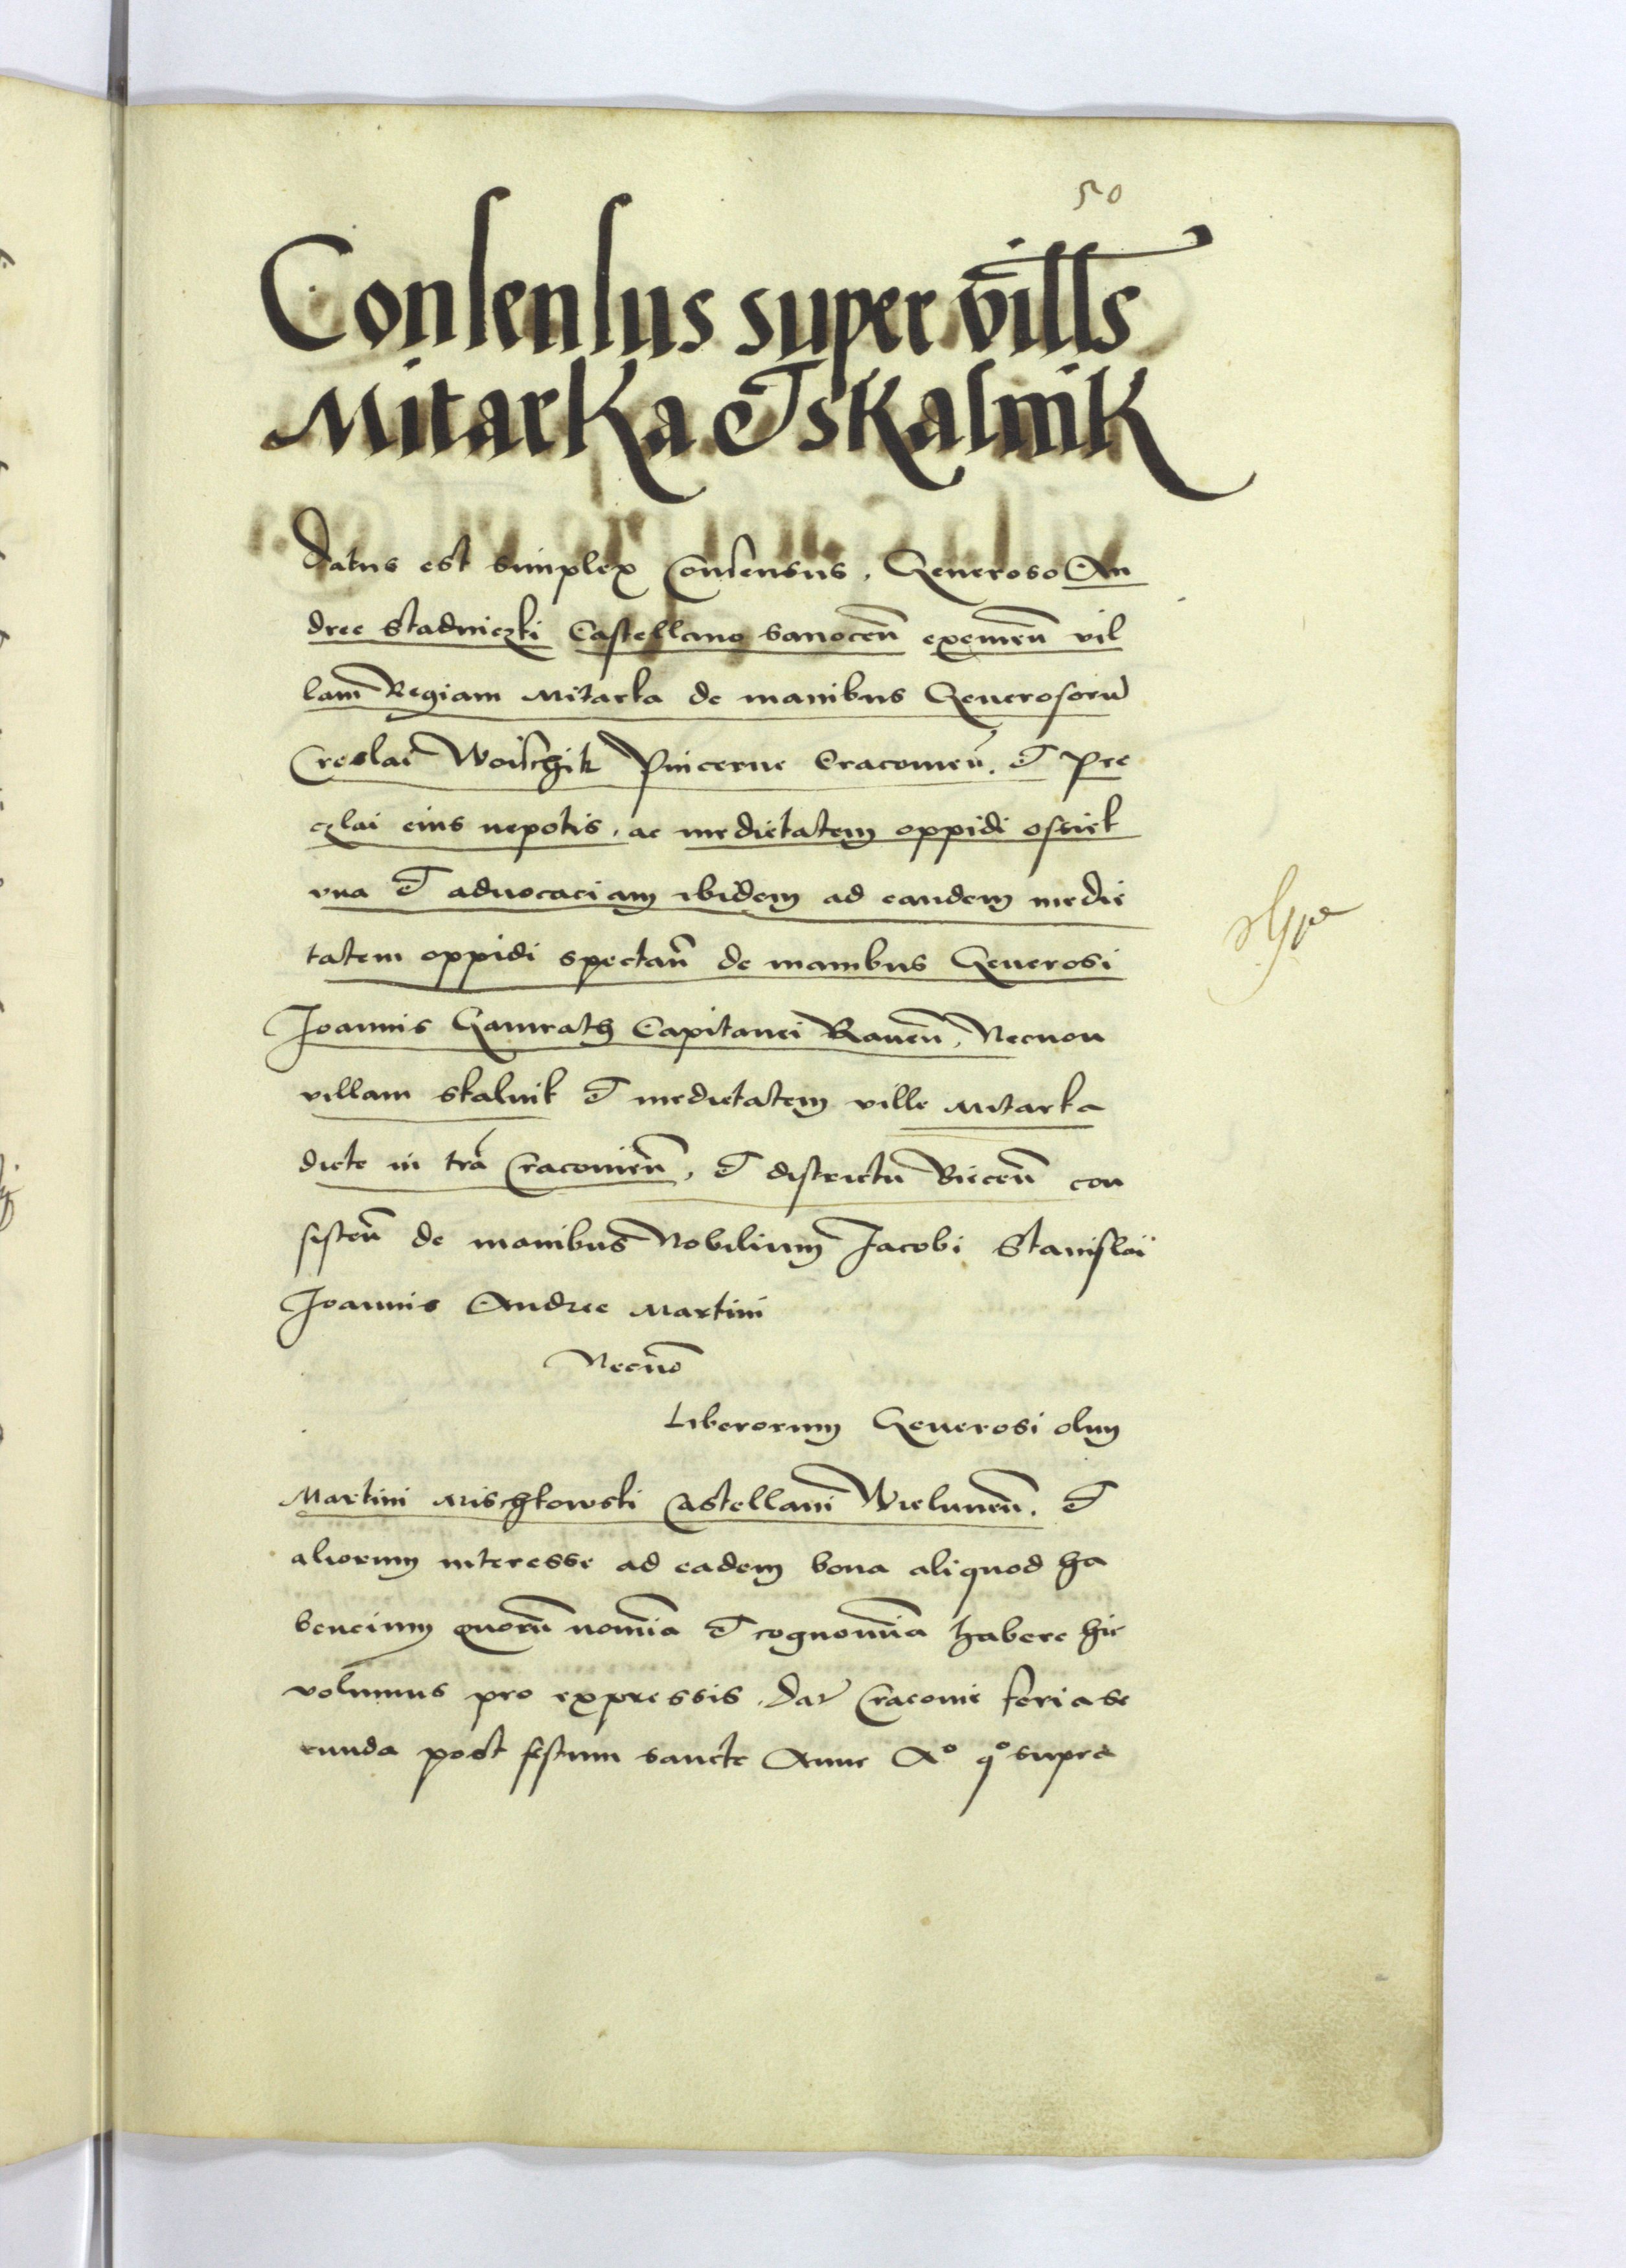 50
Consensus super vills
Mitarka et skalnik
Datus est simplex Consensus, Generoso An
dree Stadniczki Castellano Sanocen̄ eximen̄ vil
lam Regiam Mitarka de manibus Generosorū
Creslai Woischik Pincerne Cracouien̄. et Pre
czlai eius nepotis, ac medietatem oppidi ossiek
vna et aduocaciam ibidem ad eandem medie
tatem oppidi spectan̄ de manibus Generosi
Joannis Gamrath Capitanei Rauen̄, Necnon
villam skalnik et medietatem ville Mitarka
dicte in tra Cracouien̄, et districtu Biecen̄ con
sisten̄ de manibus Nobilium Jacobi Stanislai
Joannis Andree Martini
Necnō
Liberorum Generosi olim
Martini Mischkowski Castellani Wielunen̄. et
aliorum interesse ad eadem bona aliquod ha
bencium quorū nomīa et cognomīa habere hic
volumus pro expressis. Dat Cracouie feria se
cunda post festum sancte Anne Aº qº supra